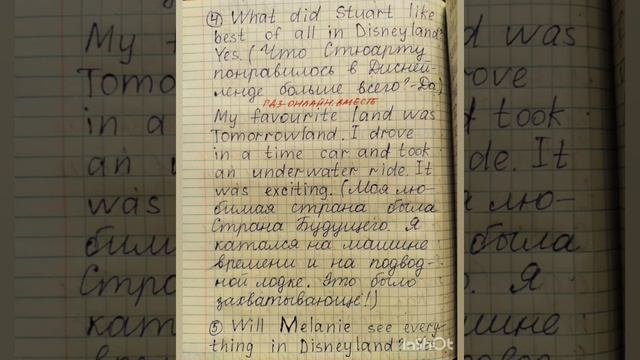 ④ What did Stuart like
best of all in Disneyland?
Yes. (Что Стюарту
понравилось в Дисней-
ленде больше всего? -Да.)
РАЗ-ОНЛАЙН.ВМЕСТЕ
My favourite land was
Tomorrowland. I drove
in a time car and took
an underwater ride. It
was exciting. (Моя лю-
бимая страна была
Страна Будущего. Я
катался на машине
времени и на подвод-
ной лодке. Это было
захватывающе!)
⑤ Will Melanie see every
thing in Disneyland?
InShot